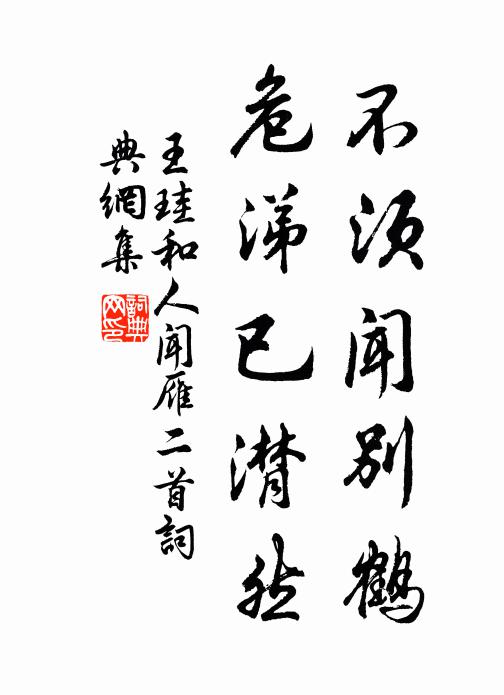 不須聞別鶴
危涕已潸然
王珪和人聞雁二首詞
典網集
詞典网印